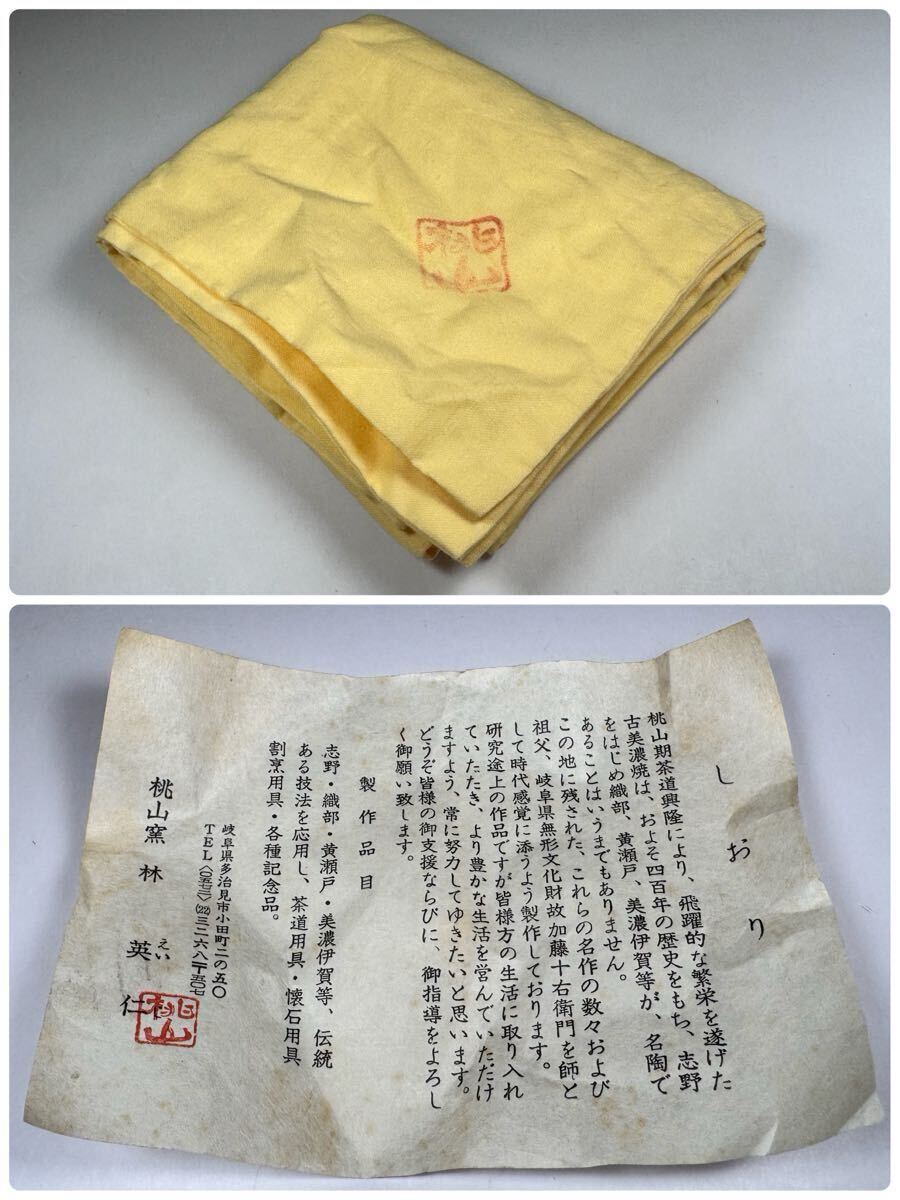 しおり
桃山期茶道興隆により、飛躍的な繁栄を遂げた
古美濃焼は、およそ四百年の歴史をもち、志野
をはじめ織部、黄瀬戸、美濃伊賀等が、名陶で
あることはいうまでもありません。
この地に残された、これらの名作の数々および
祖父、岐阜県無形文化財故加藤十右衛門を師と
して時代感覚に添うよう製作しております。
研究途上の作品ですが皆様方の生活に取り入れ
ていたたき、より豊かな生活を営んでいただけ
ますよう、常に努力してゆきたいと思います。
どうぞ皆様の御支援ならびに、御指導をよろし
く御願い致します。
製作品目
志野・織部・黄瀬戸・美濃伊賀等、伝統
ある技法を応用し、茶道用具・懐石用具
割烹用具・各種記念品。
岐阜県多治見市小田町二の五〇
TEL〈〇五七二〉(22)三二六八 〒五〇七
桃山窯 林 英仁
えい
桃山